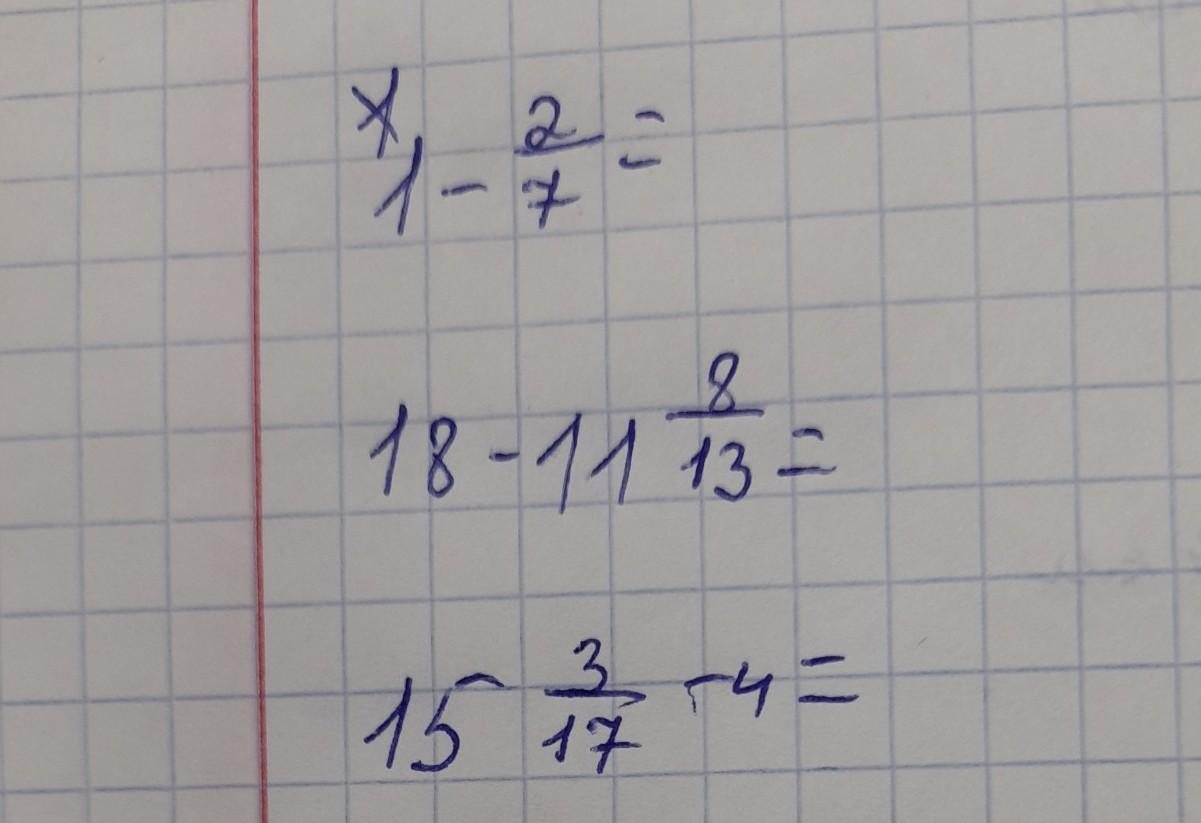 1 - 2/7 =
18 - 11 8/13 =
15 3/17 - 4 =